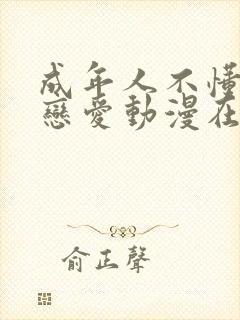 成年人不懂
戀愛動漫在
俞正聲